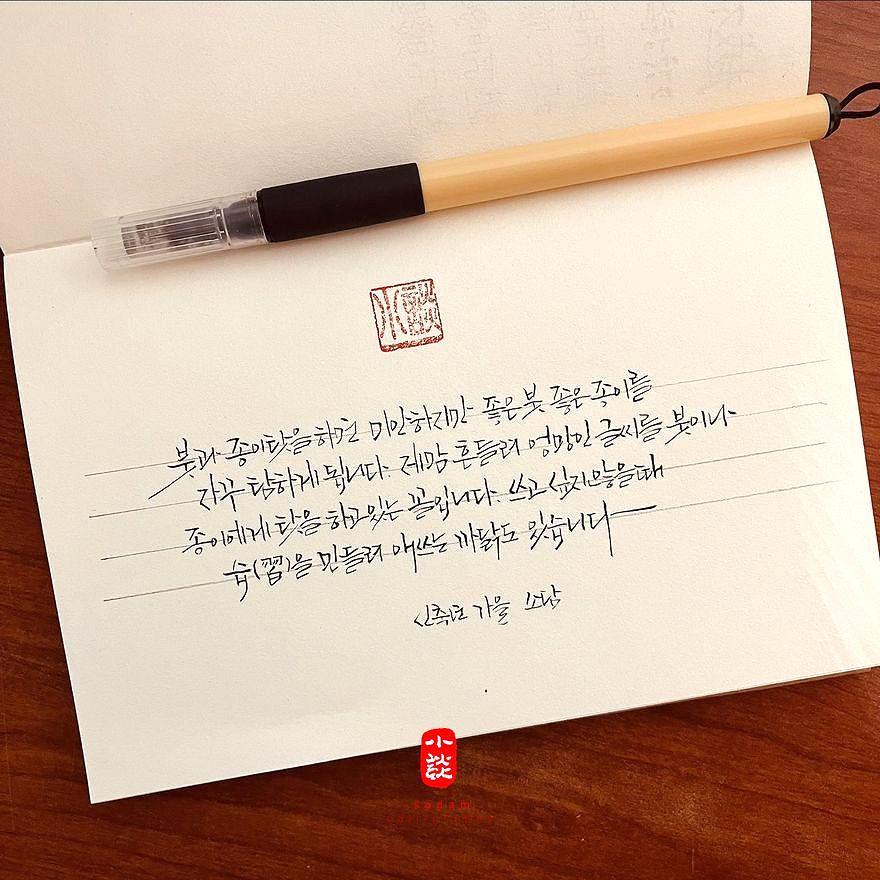 小談
붓과 종이탓을 하면 미안하지만 좋은 붓 좋은 종이를
자꾸 탐하게 됩니다. 제맘 흔들려 엉망인 글씨를 붓이나
종이에게 탓을 하고있는 꼴입니다. 쓰고 싶지않을때
습(習)을 만들려 애쓰는 까닭도 있습니다
신축년 가을 소담
小談
sodam